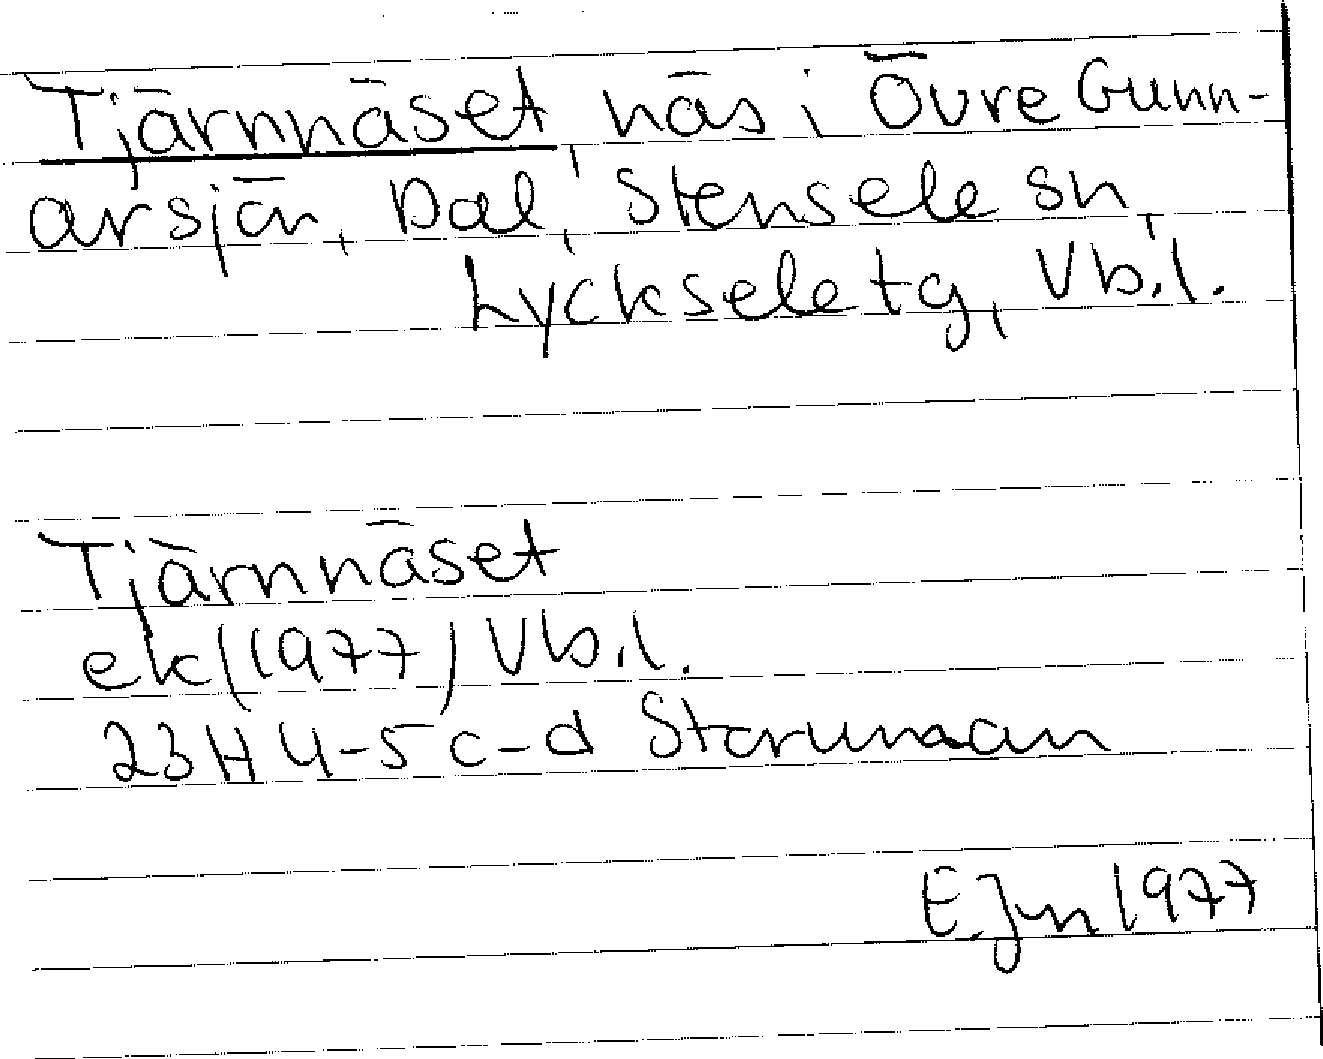 Tjärnnäset, näs i Övre Gunn-
arsjön, Dal, Stensele sn,
Lycksele tg, Vb.l.
Tjärnnäset
ek (1977) Vb.l.
23H 4-5 c-d Storuman
E. Jn 1977